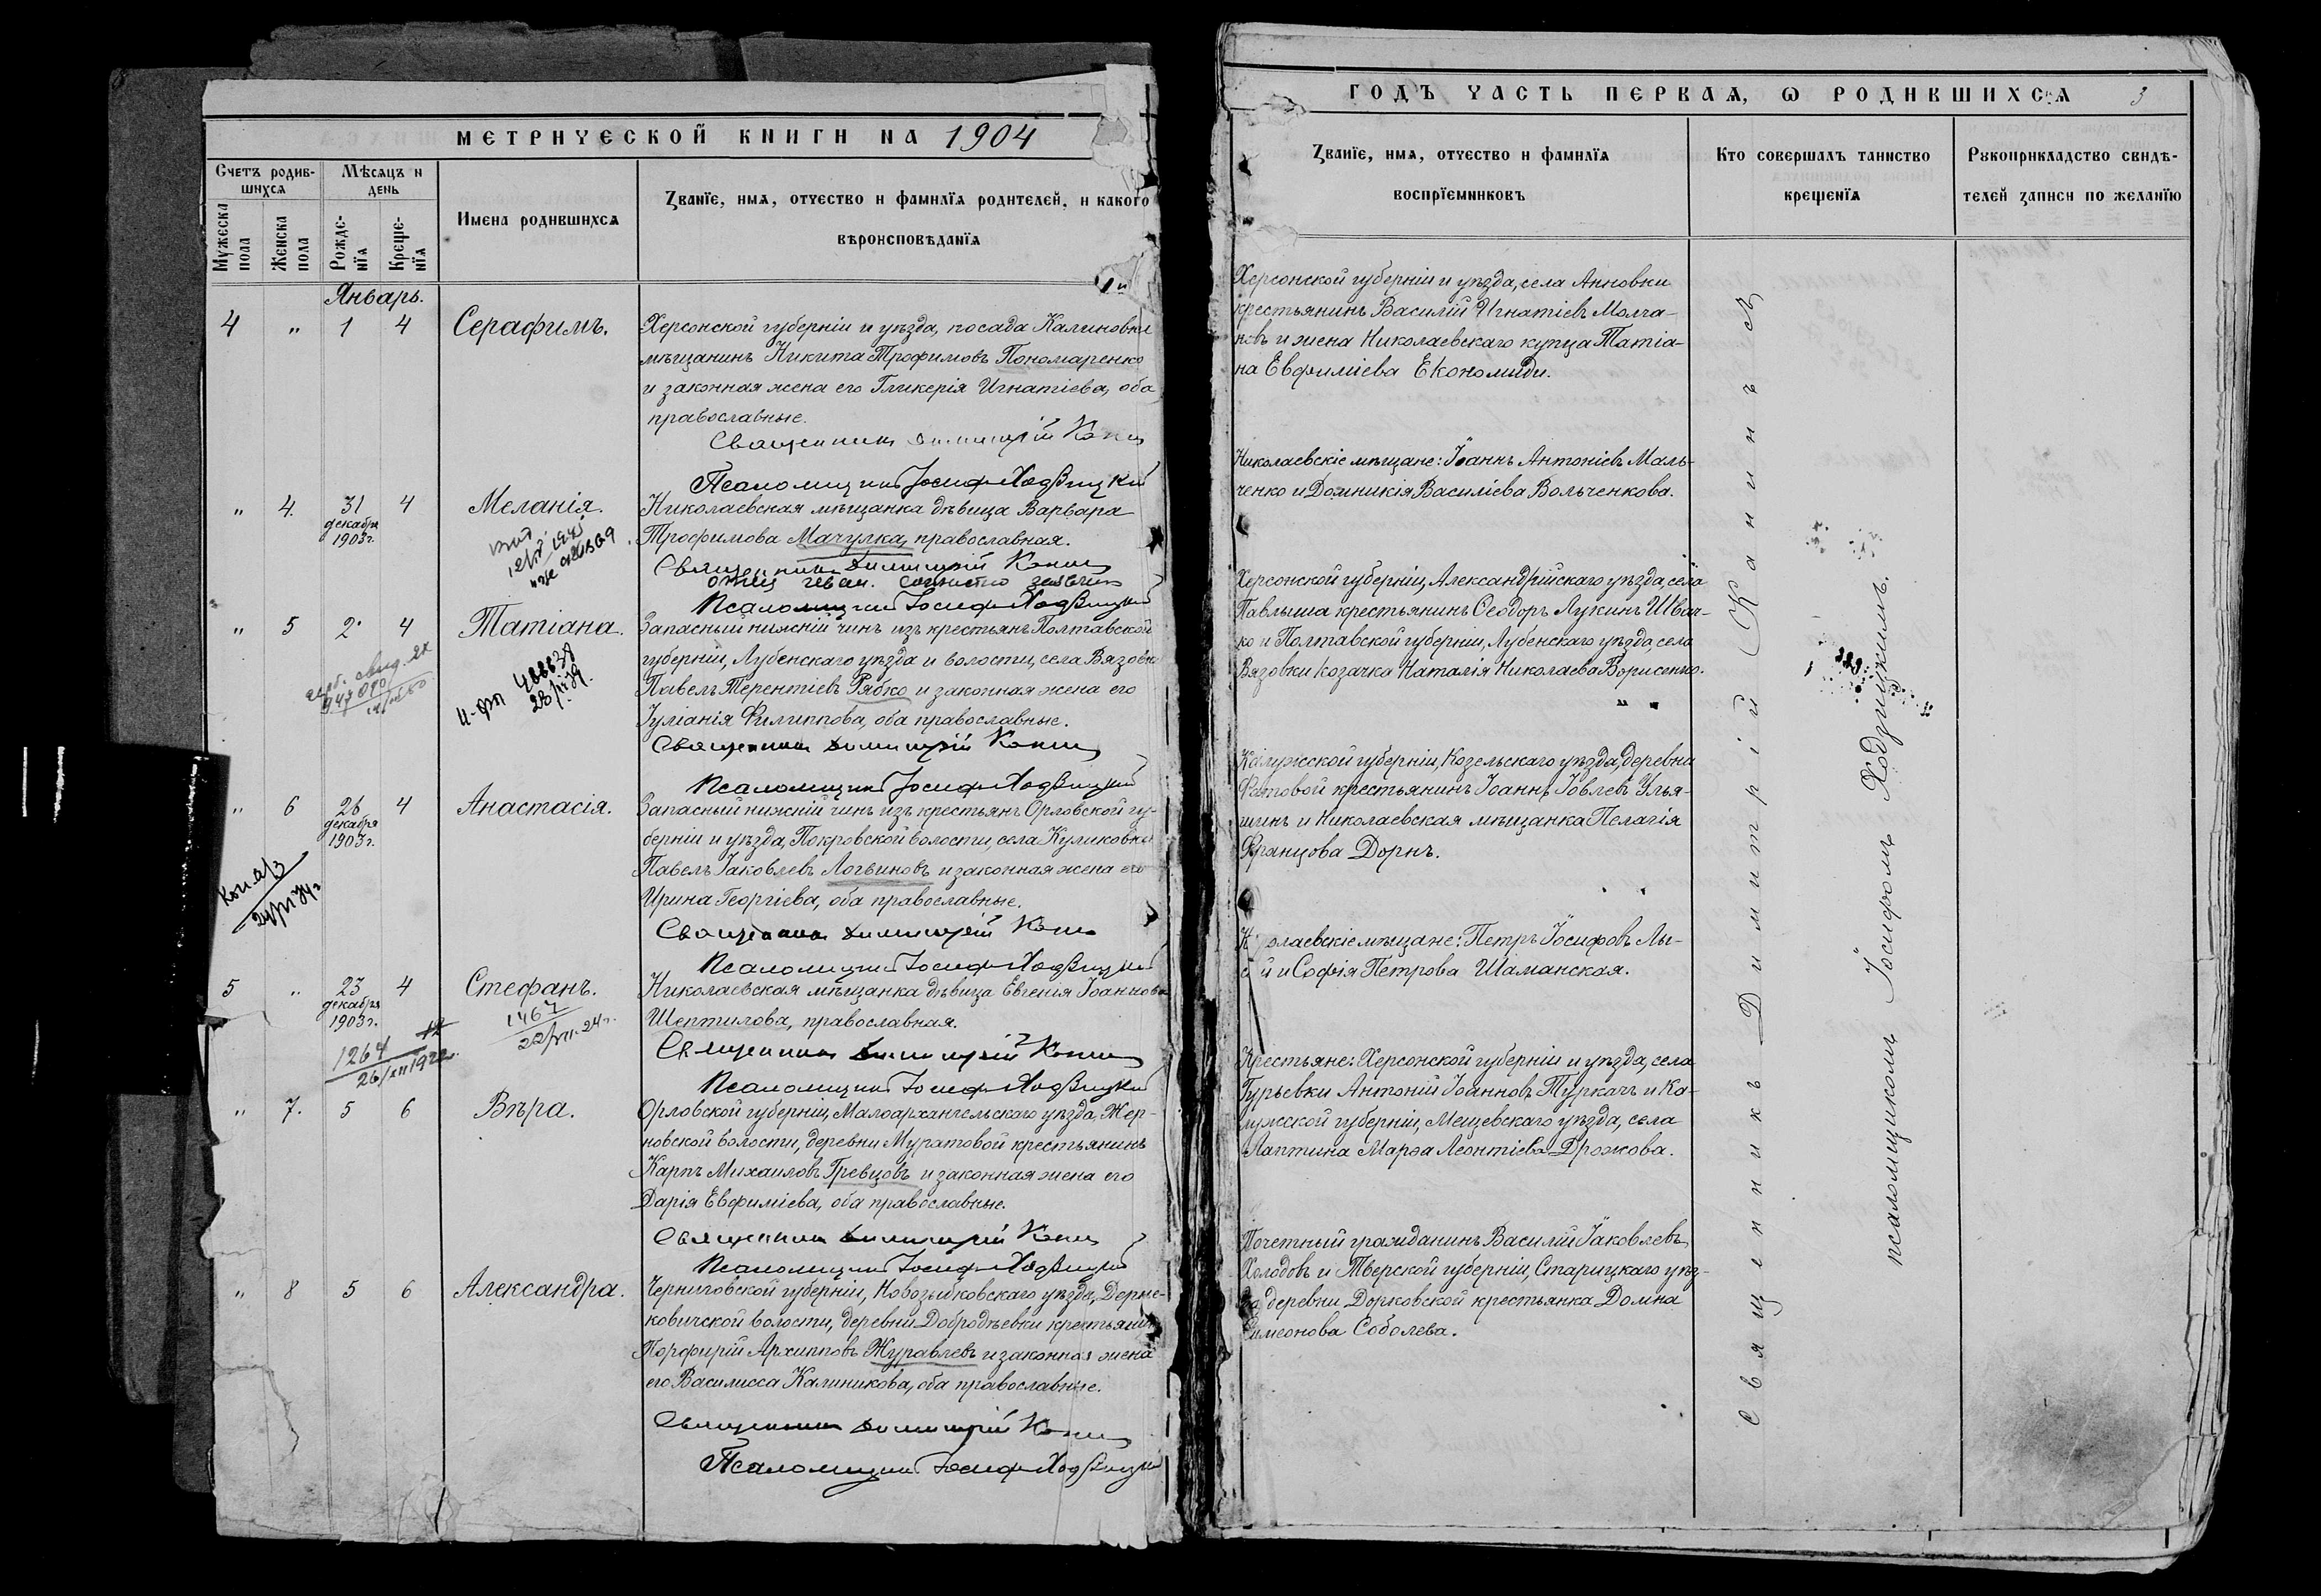 МЕТРИЧЕСКОЙ КНИГИ НА 1904
Счетъ родив-
шихся
Мѣсяцъ и
день
Мужеска
пола
Женска
пола
Рожде-
нїя
Креще-
нїя
Имена родившихся
Званїе, имя, отчество и фамилїя родителей, и какого
вѣроисповѣданїя
Январь.
4 " 1 4 Серафимъ.
Херсонской губерніи и уѣзда, посада Калиновки
мѣщанинъ Никита Трофимовъ Пономаренко
и законная жена его Гликерія Игнатіева, оба
православные.
Священникъ Димитрій Канинъ
Псаломщикъ Іосифъ Ходзицкій
" 4. 31 декабря 1903 г. 4 Меланія.
Николаевская мѣщанка дѣвица Варвара
Трофимова Мачулка, православная.
Священникъ Димитрій Канинъ
Псаломщикъ Іосифъ Ходзицкій
" 5 2 4 Татіана.
Запасный нижній чинъ изъ крестьянъ Полтавской
губерніи, Лубенскаго уѣзда и волости, села Вязовки
Павелъ Терентіевъ Рябко и законная жена его
Іуліанія Филиппова, оба православные.
Священникъ Димитрій Канинъ
Псаломщикъ Іосифъ Ходзицкій
" 6 26 декабря 1903 г. 4 Анастасія.
Запасный нижній чинъ изъ крестьянъ Орловской гу-
берніи и уѣзда, Покровской волости, села Куликовки
Павелъ Іаковлевъ Логвиновъ и законная жена его
Ирина Георгіева, оба православные.
Священникъ Димитрій Канинъ
Псаломщикъ Іосифъ Ходзицкій
5 " 23 декабря 1903 г. 4 Стефанъ.
1467
1264
Николаевская мѣщанка дѣвица Евгенія Іоаннова
Шептилова, православная.
Священникъ Димитрій Канинъ
Псаломщикъ Іосифъ Ходзицкій
" 7. 5 6 Вѣра.
Орловской губерніи, Малоархангельскаго уѣзда, Жер-
новской волости, деревни Муратовой крестьянинъ
Карпъ Михаиловъ Гревцовъ и законная жена его
Дарія Евфиміева, оба православные.
Священникъ Димитрій Канинъ
Псаломщикъ Іосифъ Ходзицкій
" 8 5 6 Александра.
Черниговской губерніи, Новозыбковскаго уѣзда,
ковичской волости, деревни Добродѣевки крестьянинъ
Порфирій Архипповъ Журавлевъ и законная жена
его Василисса Калиникова, оба православные.
Священникъ Димитрій Канинъ
Псаломщикъ Іосифъ Ходзицкій
ГОДЪ ЧАСТЬ ПЕРВАЯ, Ѡ РОДИВШИХСЯ 3
Званїе, имя, отчество и фамилїя
воспрїемниковъ
Кто совершалъ таинство
крещенїя
Рукоприкладство свидѣ-
телей записи по желанїю
Херсонской губерніи и уѣзда, села Анновки
крестьянинъ Василій Игнатіевъ Молча-
новъ и жена Николаевскаго купца Татіа-
на Евфиміева Економиди.
Николаевскіе мѣщане: Іоаннъ Антоніевъ Маль-
ченко и Домникія Василіева Вольченкова.
Херсонской губерніи, Александрійскаго уѣзда, села
Павлыша крестьянинъ Ѳеодоръ Лукинъ Швач-
ко и Полтавской губерніи, Лубенскаго уѣзда, села
Вязовки козачка Наталія Николаева Борисенко.
Калужской губерніи, Козельскаго уѣзда, деревни
крестьянинъ Іоаннъ Іовлевъ Улья-
шинъ и Николаевская мѣщанка Пелагія
Францова Дорнъ.
Николаевскіе мѣщане: Петръ Іосифовъ Лы-
сый и Софія Петрова Шаманская.
Крестьяне: Херсонской губерніи и уѣзда, села
Гурьевки Антоній Іоанновъ Туркачъ и Ка-
лужской губерніи, Мещевскаго уѣзда, села
Лаптина Марѳа Леонтіева Дрожова.
Почетный гражданинъ Василій Іаковлевъ
Холодовъ и Тверской губерніи, Старицкаго уѣз-
да, деревни Дорковской крестьянка Домна
Симеонова Соболева.
Священникъ Димитрій Канинъ съ
псаломщикомъ Іосифомъ Ходзицкимъ.